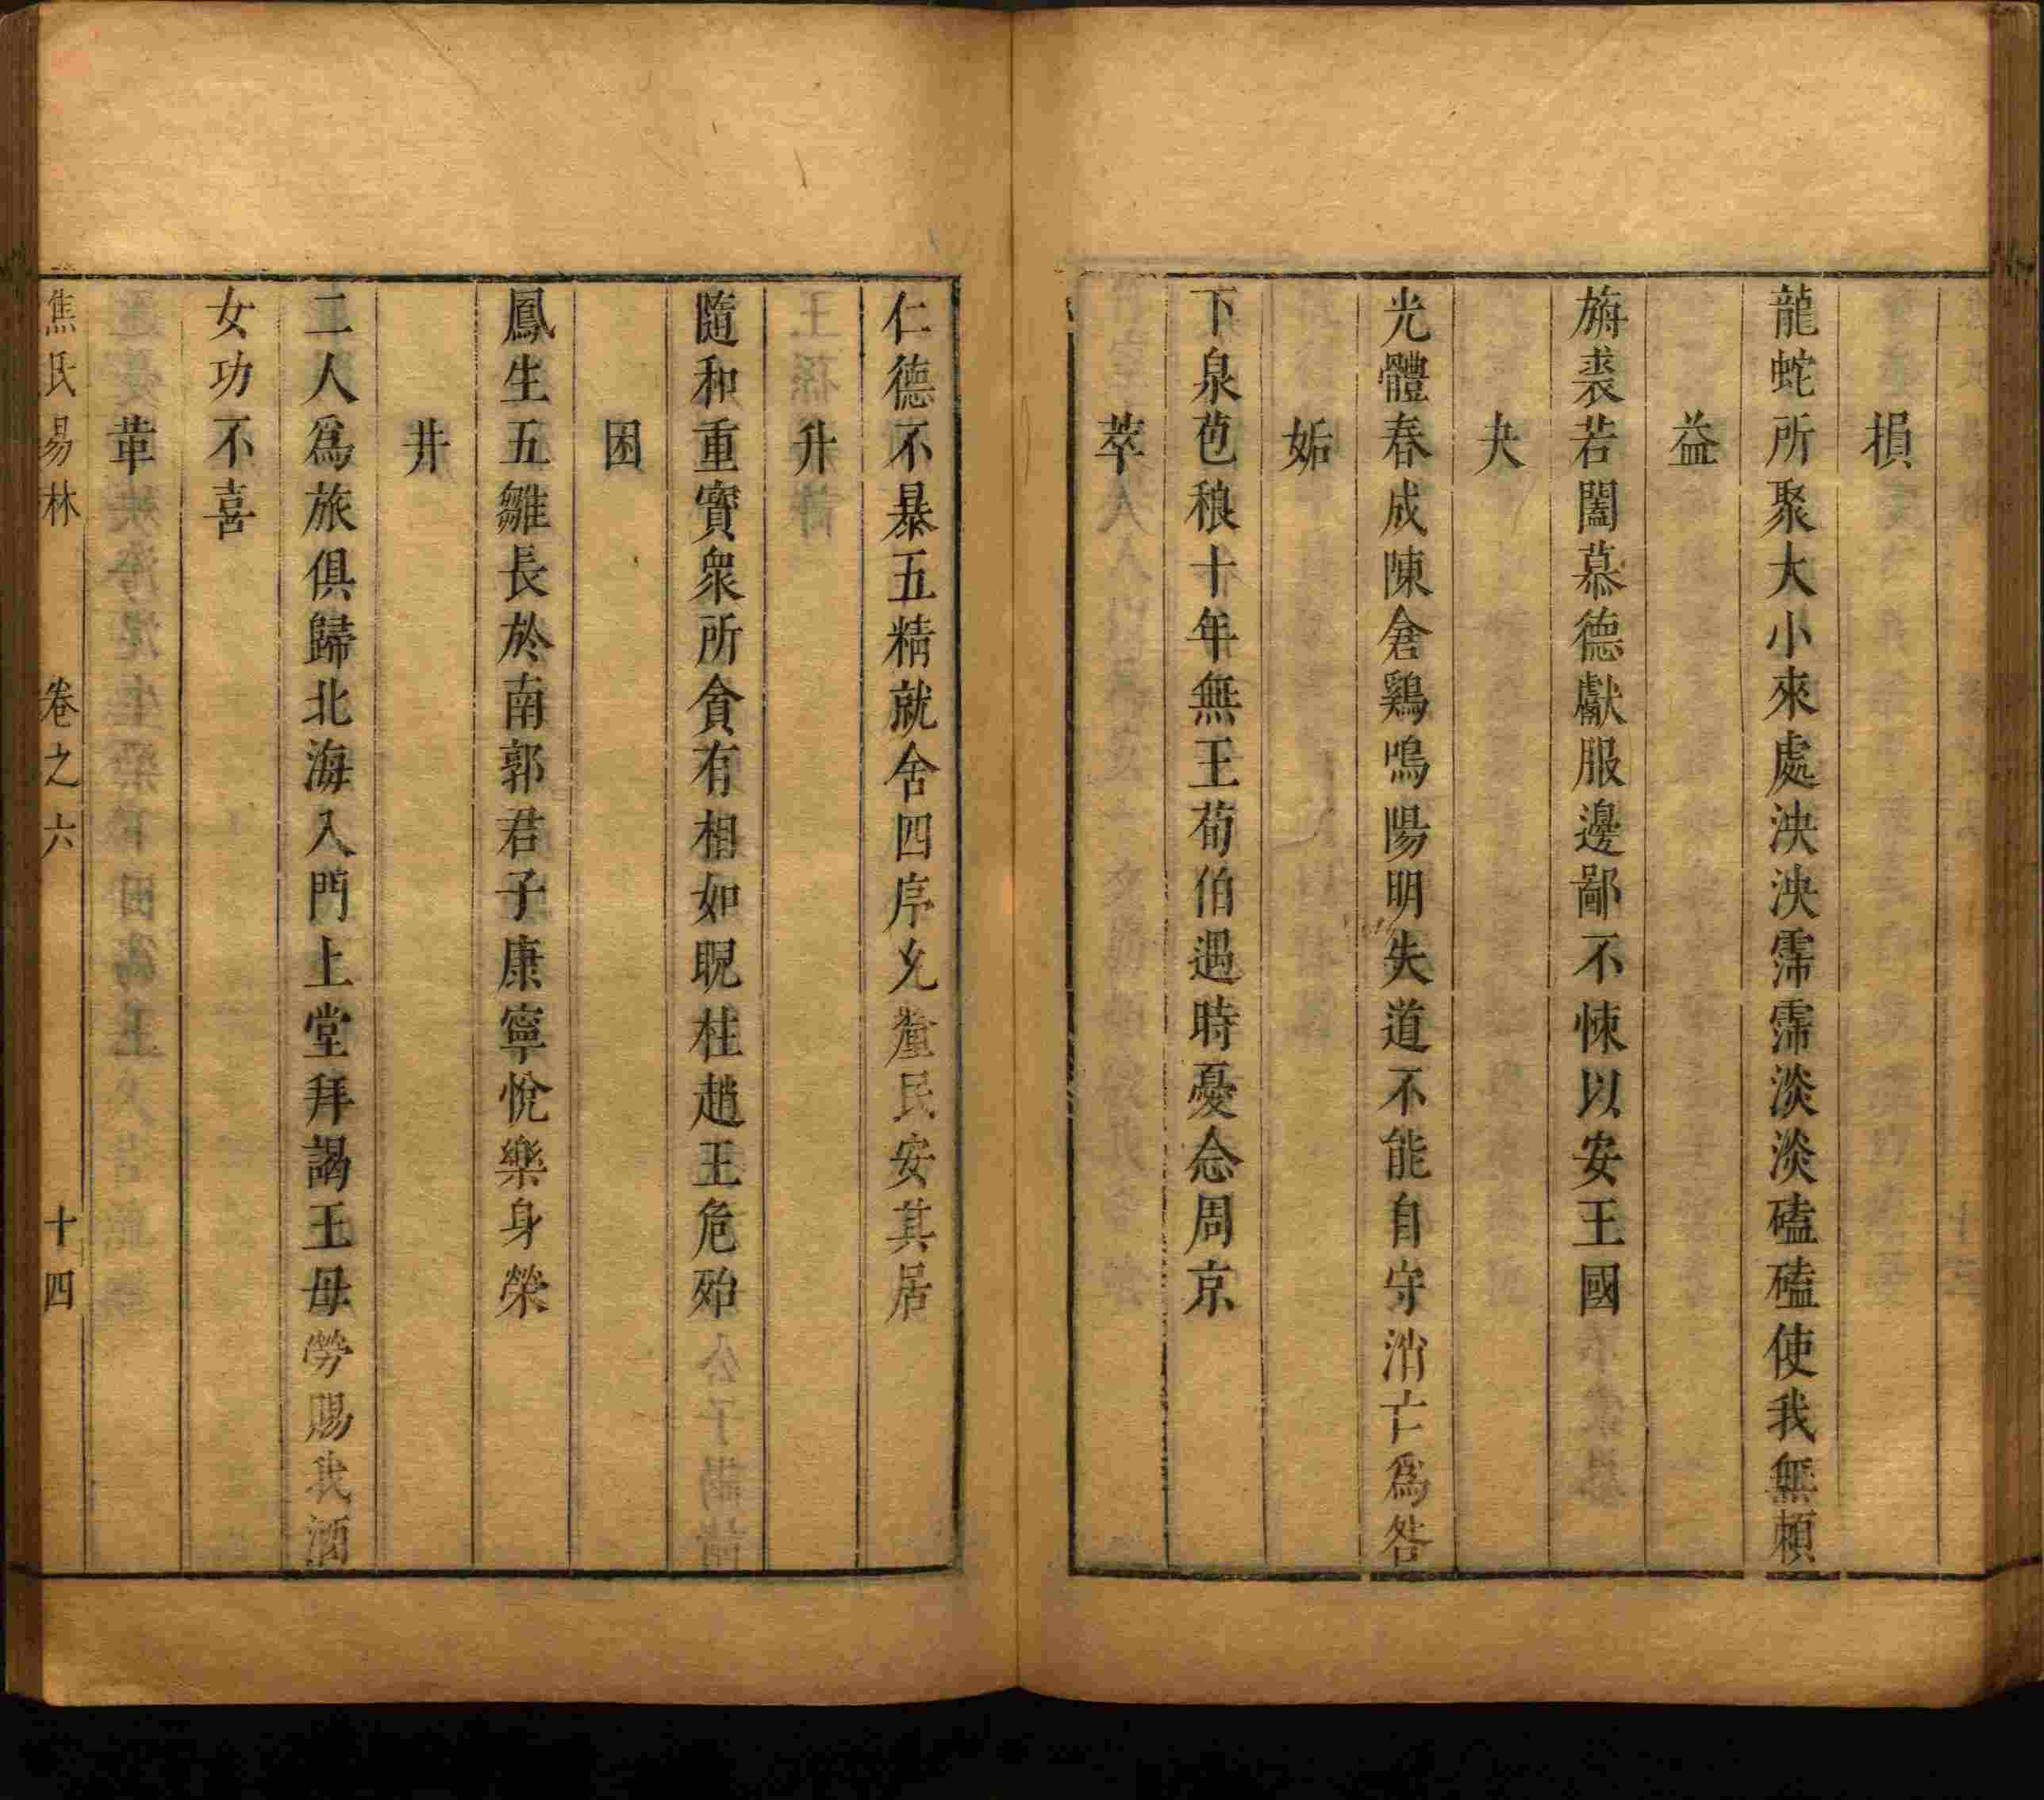 損
龍蛇所聚大小來處泱泱霈霈淡淡磕磕使我無賴
益
旃裘苫闔慕德獻服邊鄙不悚以安王國
夬
光體春成陳倉鷄鳴陽明失道不能自守消亡爲咎
姤
下泉苞稂十年無王荀伯遇時憂念周京
萃
仁德不暴五精就舍四序允釐民安其居
升
隨和重寶衆所貪有相如睨柱趙王危殆
困
鳳生五雛長於南郭君子康寧悅樂身榮
井
二人爲旅俱歸北海入門上堂拜謁王母勞賜我酒
女功不喜
革
焦氏易林 卷之六 十四